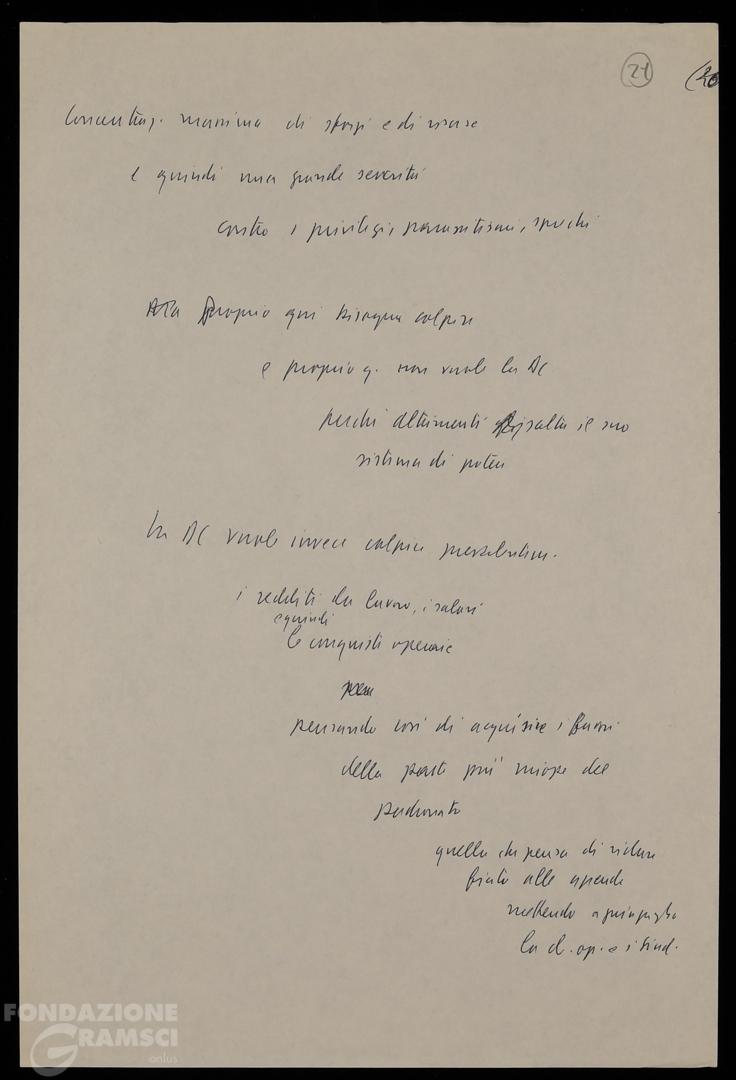 21
(20
Concentraz. massima di sforzi e di risorse
e quindi una grande severità
contro i privilegi, parassitismi, sprechi
Ma proprio qui bisogna colpire
e proprio q. non vuole la DC
perché altrimenti salta il suo
sistema di potere
La DC vuole invece colpire
i redditi da lavoro, i salari
e quindi
le conquiste operaie
pensando così di acquisire i favori
della parte più miope del
padronato
quella che pensa di ridare
fiato alle aziende
mettendo
la cl. op. e i sind.
FONDAZIONE
GRAMSCI
onlus